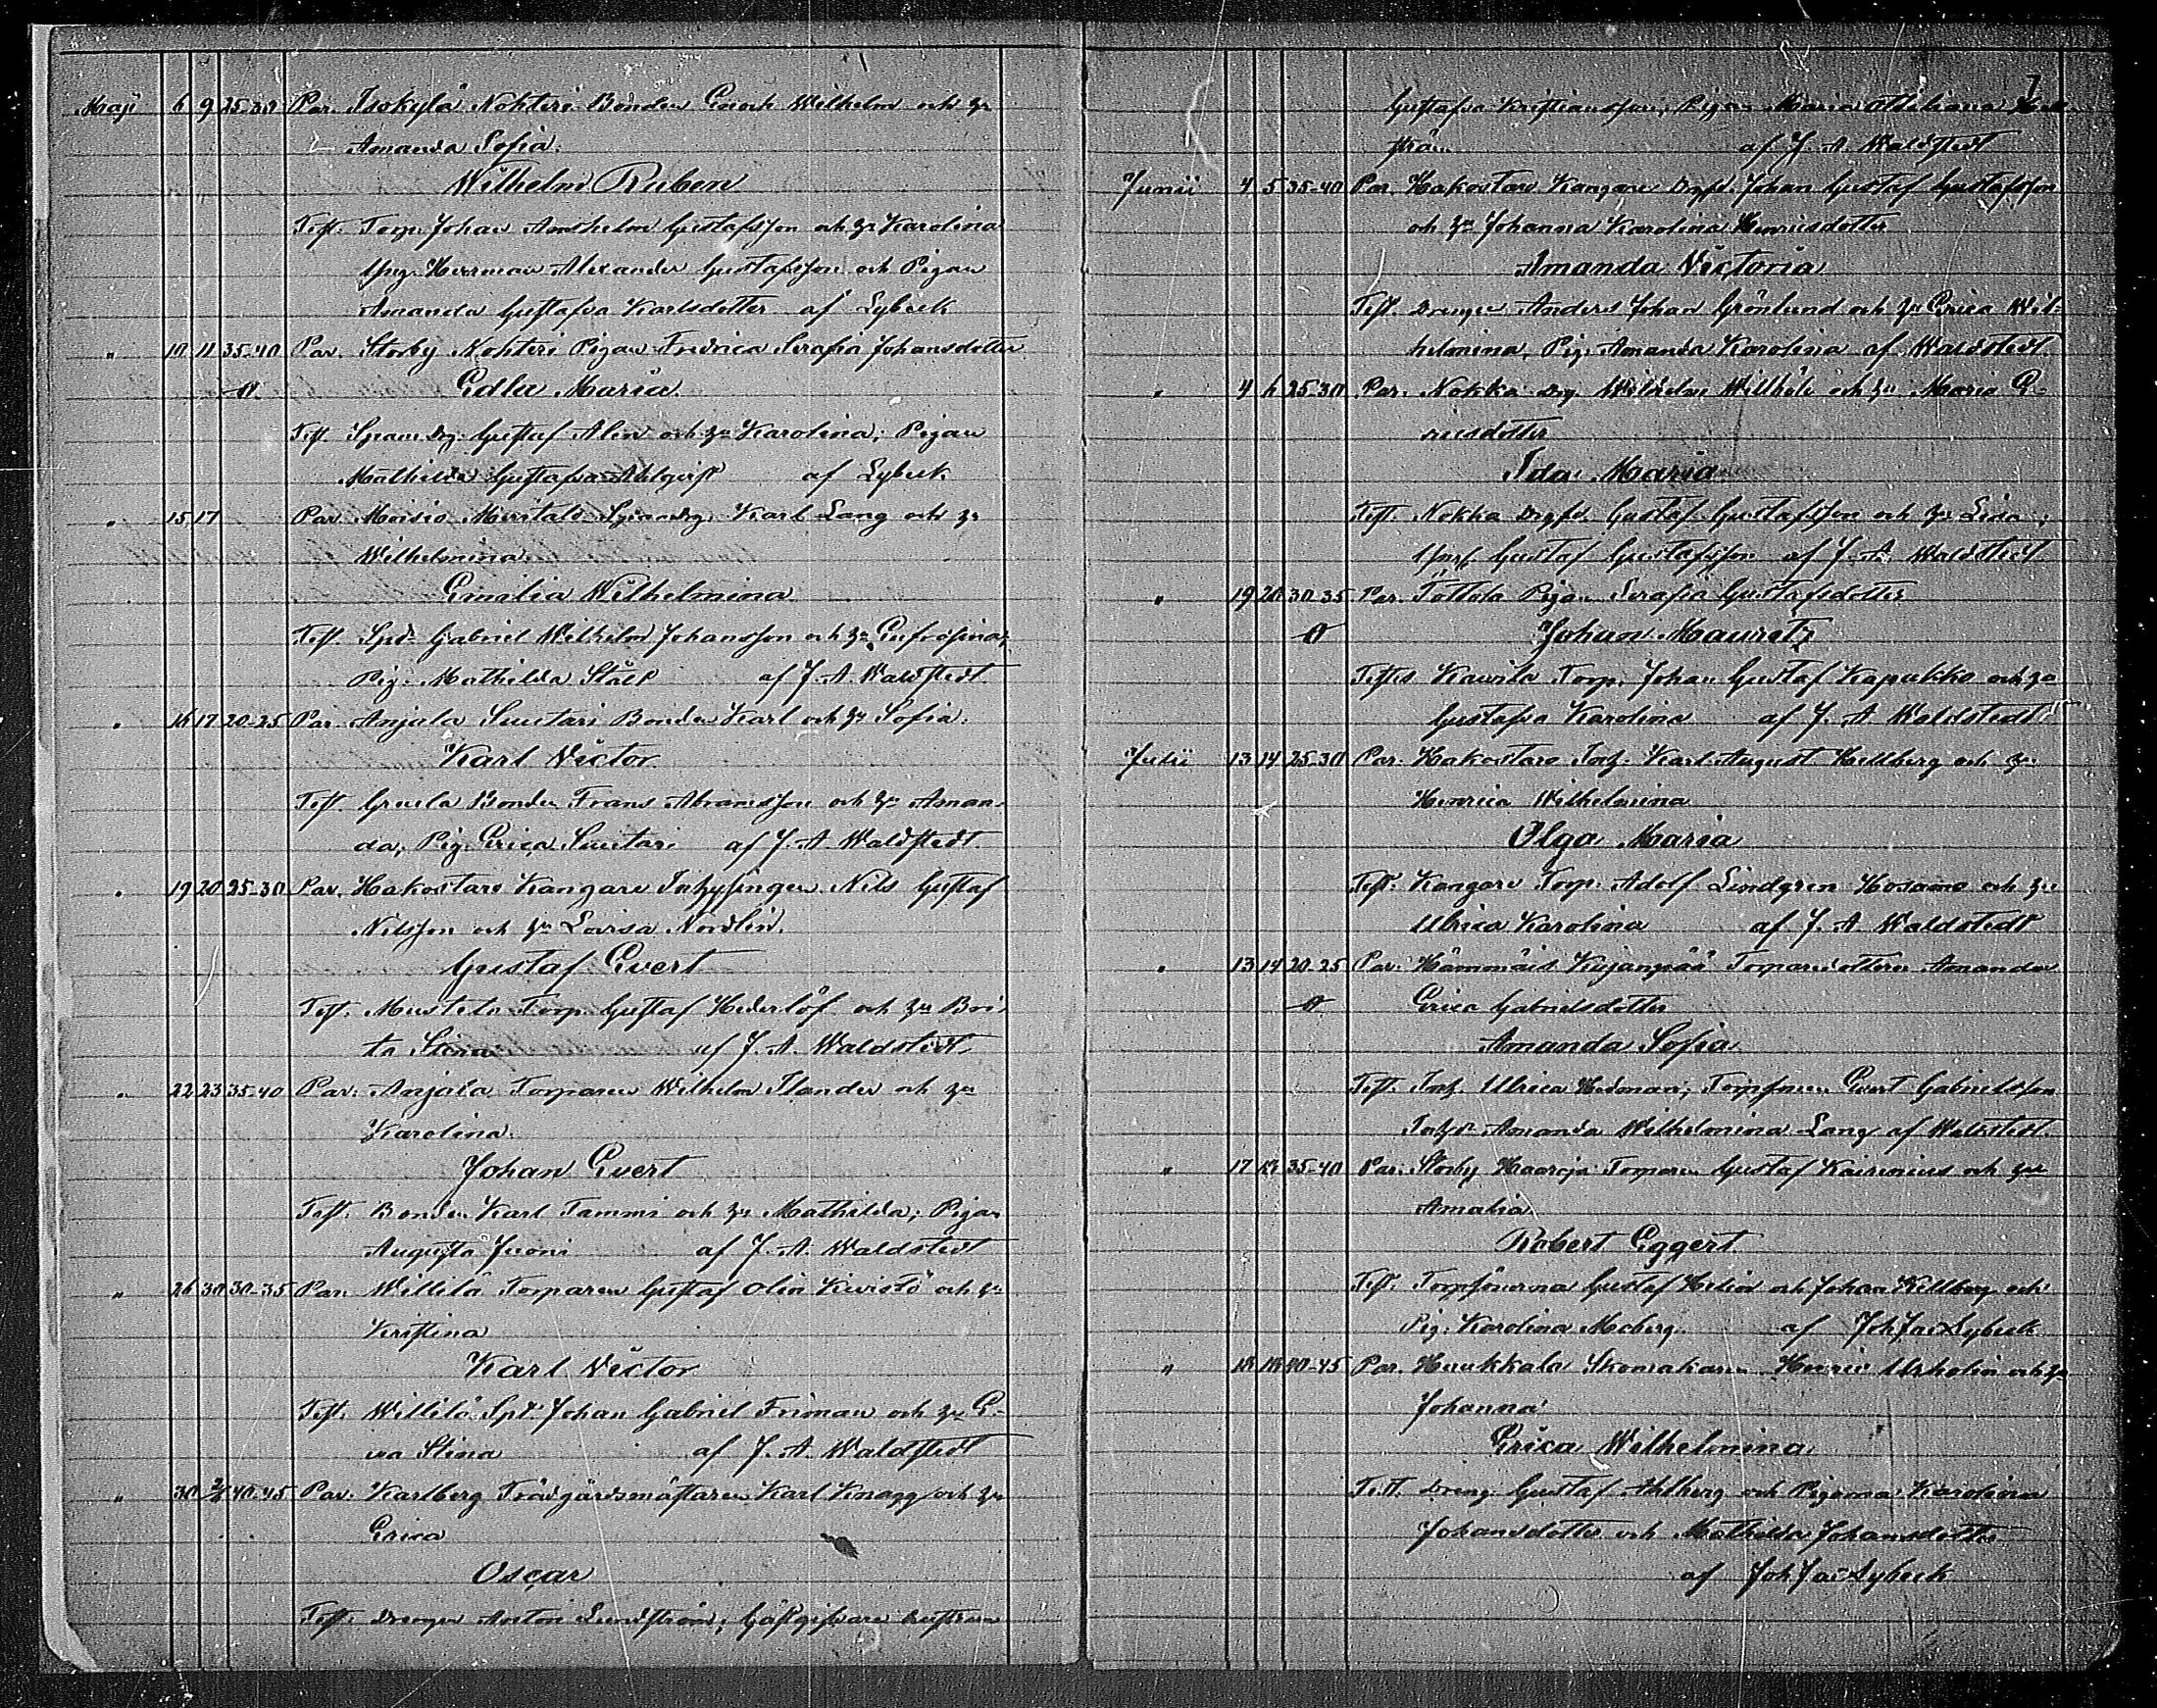 Maji 6 9 25-30 Par. Isokylä Nohteri Bonden Enoch Wilhelm och Hu
Amanda Sofia.
Wilhelm Ruben
Test. Torp. Johan Anshelm Gustafsson och Hu Karolina
Yng. Herman Alexander Gustafsson och Pigan
Amanda Gustafva Karlsdotter af Lybeck
" 10 11 35-40 Par. Storby Nohteri Pigan Fredrica Serafia Johansdotter
Edla Maria.
Test. Spam. Drg. Gustaf Alen och Hu Karolina; Pigan
Mathilda Gustafva Ahlqvist af Lybeck.
" 15 17 Par. Moisio Muntalo Spandrg. Karl Lang och Hu
Wilhelmina.
Emilia Wilhelmina
Test. Spd. Gabriel Wilhelm Johansson och Hu Eufrosina;
Pig. Mathilda Ståhl af J. A. Waldstedt
" 16 17 20-25 Par. Anjala Suutari Bonden Karl och Hu Sofia.
Karl Victor
Test. Gruela Bonden Frans Abramsson och Hu Aman-
da, Pig. Erica Suutari af J. A. Waldstedt.
" 19 20 25-30 Par. Hakostaro Kangare Inhysingen Nils Gustaf
Nilsson och Hu Lovisa Nordlin.
Gustaf Evert
Test. Mustela Torp. Gustaf Hederlöf och Hu Bri-
ta Stina af J. A. Waldstedt.
" 22 23 35-40 Par. Anjala Torparen Wilhelm Ilander och Hu
Karolina.
Johan Evert
Test. Bonden Karl Tammi och Hu Mathilda; Pigan
Augusta Juoni af J. A. Waldstedt
" 26 30 30-35 Par. Willilä Torparen Gustaf Olin Kivistö och Hu
Kristina
Karl Victor
Test. Willilä Spt. Johan Gabriel Friman och Hu E-
va Stina af J. A. Waldstedt
" 30 2/6 40-45 Par. Karlberg Trädgårdsmästaren Karl Knagg och Hu
Erica
Oscar
Test. Drengen Anton Lundström; Gästgifvare
7
Gustafva Kristiansson, Pigan Maria
af J. A. Waldstedt
Junii 4 5 35-40 Par. Hakostaro Kangare Drgf. Johan Gustaf Gustafsson
och Hu Johanna Karolina Henriksdotter
Amanda Victoria
Test. Drengen Anders Johan Grönlund och Hu Erica Wil-
helmina, Pig. Amanda Karolina af Waldstedt.
" 4 6 25-30 Par. Nokka Drg. Wilhelm Willhöle och Hu Maria E-
ricsdotter
Ida Maria
Test. Nokka Drgf. Gustaf Gustafsson och Hu Lisa;
Gustaf Gustafsson af J. A. Waldstedt
" 19 20 30-35 Par. Töttola Pigan Serafia Gustafsdotter
Johan Mauretz
Testes Kauvila Torp. Johan Gustaf Kapukko och Hu
Gustafva Karolina af J. A. Waldstedt
Julii 13 14 25-30 Par. Hakostaro Inh. Karl August Hellberg och Hu
Henrica Wilhelmina
Olga Maria
Test. Kangare Torp. Adolf Lindgren Hosamo och Hu
Ulrica Karolina af J. A. Waldstedt
" 13 14 20-25 Par. Hämmäis Kujanpää Torparedottern Amanda
Erica Gabrielsdotter
Amanda Sofia.
Test. Inh. Ulrica Hedman; Torpsonen Evert Gabrielsson
Inhd. Amanda Wilhelmina Lang af Waldstedt.
" 17 35-40 Par. Storby Haaroja Torparen Gustaf Kairinius och Hu
Amalia.
Robert Eggert.
Test. Torpsönerna Gustaf Helin och Johan Kellberg och
Pig. Karolina Moberg. af Joh Ja Lybeck
" 18 18 40-45 Par. Huukkala Skomakaren Henric och Hu
Johanna
Erica Wilhelmina.
Test. Dreng. Gustaf Ahlberg och Pigorna Karolina
Johansdotter och Mathilda Johansdotter
af Joh Ja Lybeck